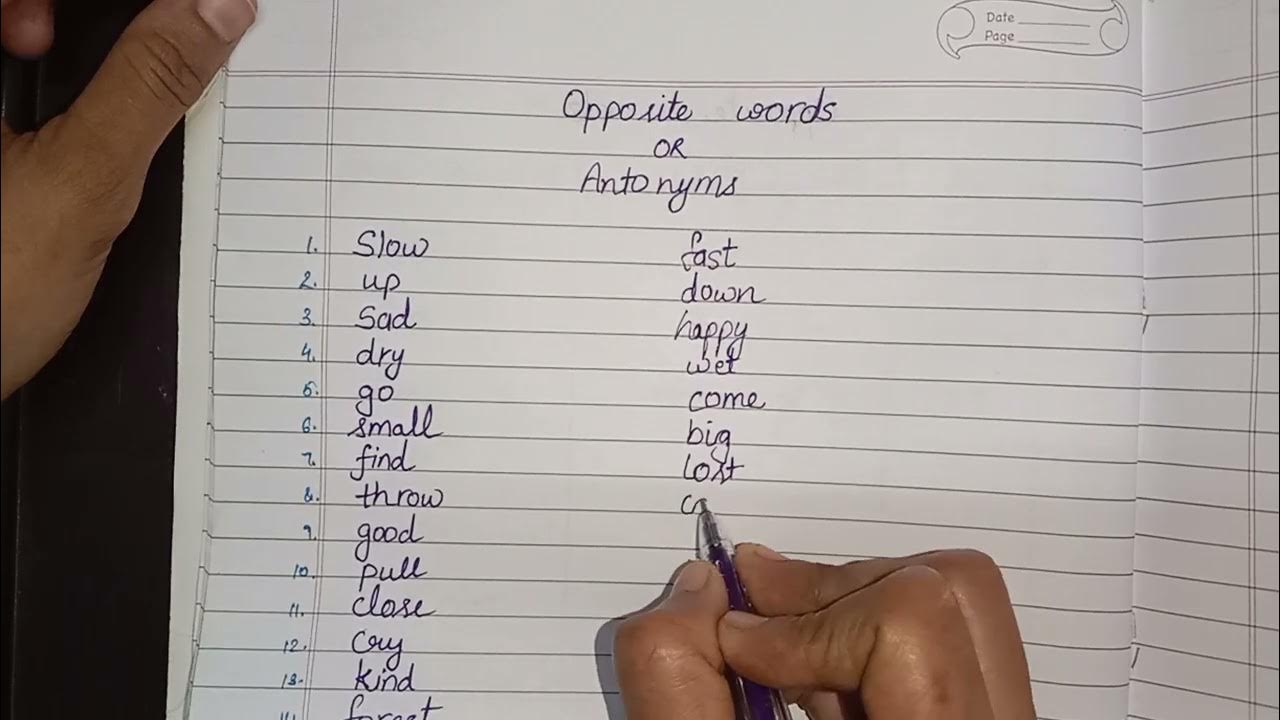 Date
Page
Opposite words
OR
Antonyms
1. Slow fast
2. up down
3. Sad happy
4. dry wet
5. go come
6. small big
7. find lost
8. throw
9. good
10. pull
11. close
12. cry
13. kind
14. forget